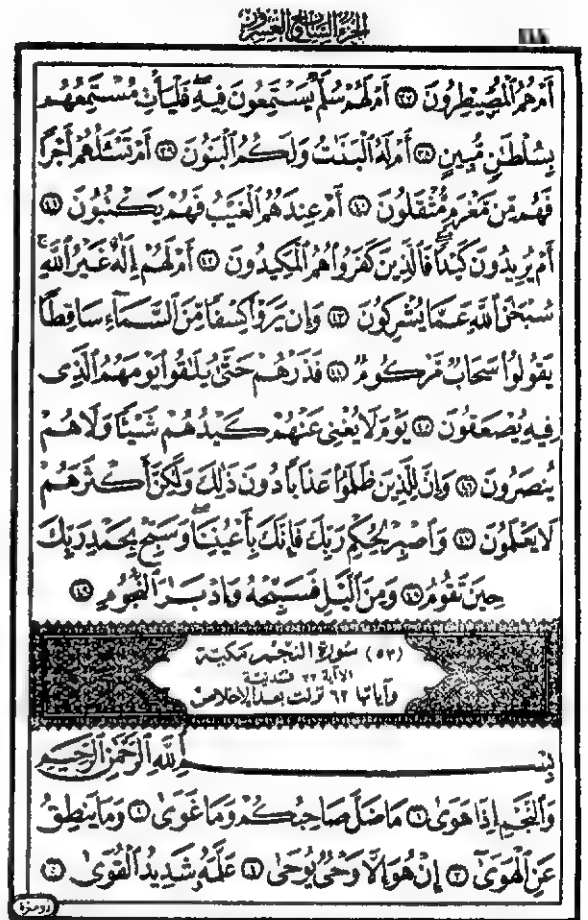 الجزء السابع والعشرون
أَمْ هُمُ ٱلْمُصَۣيْطِرُونَ ۝٣٧ أَمْ لَهُمْ سُلَّمٌ يَسْتَمِعُونَ فِيهِ ۖ فَلْيَأْتِ مُسْتَمِعُهُم
بِسُلْطَٰنٍ مُّبِينٍ ۝٣٨ أَمْ لَهُ ٱلْبَنَٰتُ وَلَكُمُ ٱلْبَنُونَ ۝٣٩ أَمْ تَسْـَٔلُهُمْ أَجْرًا
فَهُم مِّن مَّغْرَمٍ مُّثْقَلُونَ ۝٤٠ أَمْ عِندَهُمُ ٱلْغَيْبُ فَهُمْ يَكْتُبُونَ ۝٤١
أَمْ يُرِيدُونَ كَيْدًا ۖ فَٱلَّذِينَ كَفَرُوا۟ هُمُ ٱلْمَكِيدُونَ ۝٤٢ أَمْ لَهُمْ إِلَٰهٌ غَيْرُ ٱللَّهِ ۚ
سُبْحَٰنَ ٱللَّهِ عَمَّا يُشْرِكُونَ ۝٤٣ وَإِن يَرَوْا۟ كِسْفًا مِّنَ ٱلسَّمَآءِ سَاقِطًا
يَقُولُوا۟ سَحَابٌ مَّرْكُومٌ ۝٤٤ فَذَرْهُمْ حَتَّىٰ يُلَٰقُوا۟ يَوْمَهُمُ ٱلَّذِى
فِيهِ يُصْعَقُونَ ۝٤٥ يَوْمَ لَا يُغْنِى عَنْهُمْ كَيْدُهُمْ شَيْـًٔا وَلَا هُمْ
يُنصَرُونَ ۝٤٦ وَإِنَّ لِلَّذِينَ ظَلَمُوا۟ عَذَابًا دُونَ ذَٰلِكَ وَلَٰكِنَّ أَكْثَرَهُمْ
لَا يَعْلَمُونَ ۝٤٧ وَٱصْبِرْ لِحُكْمِ رَبِّكَ فَإِنَّكَ بِأَعْيُنِنَا ۖ وَسَبِّحْ بِحَمْدِ رَبِّكَ
حِينَ تَقُومُ ۝٤٨ وَمِنَ ٱلَّيْلِ فَسَبِّحْهُ وَإِدْبَٰرَ ٱلنُّجُومِ ۝٤٩
(٥٣) سُورَةِ النَّجْمِ مَكِيَّة
الآية ٣٢ فمدنية
وآياتها ٦٢ نزلت بعد الإخلاص
بِسْمِ ٱللَّهِ ٱلرَّحْمَٰنِ ٱلرَّحِيمِ
وَٱلنَّجْمِ إِذَا هَوَىٰ ۝١ مَا ضَلَّ صَاحِبُكُمْ وَمَا غَوَىٰ ۝٢ وَمَا يَنطِقُ
عَنِ ٱلْهَوَىٰٓ ۝٣ إِنْ هُوَ إِلَّا وَحْىٌ يُوحَىٰ ۝٤ عَلَّمَهُۥ شَدِيدُ ٱلْقُوَىٰ ۝٥
ذومرة